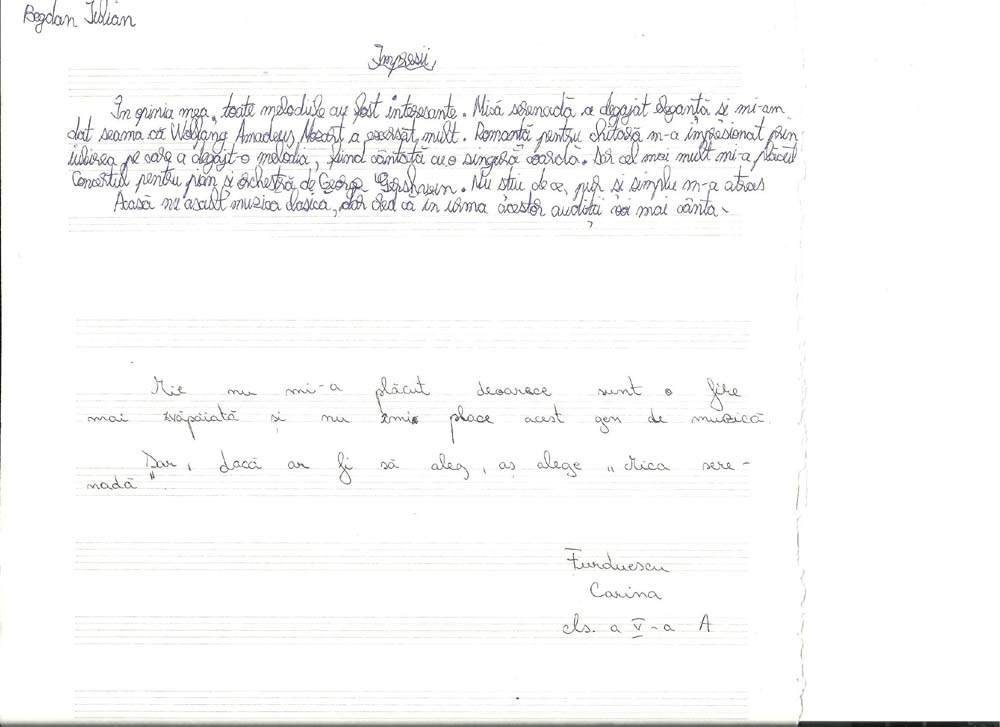 Bogdan Iulian
Impresii
În opinia mea, toate melodiile au fost interesante. Mică serenadă a degajat eleganță și mi-am
dat seama că Wolfgang Amadeus Mozart a exersat mult. Romanță pentru chitară m-a impresionat prin
iubirea pe care a degajat-o melodia, fiind cântată cu o singură coardă. Dar cel mai mult mi-a plăcut
Concertul pentru pian și orchestră de George Gershawin. Nu știu de ce, pur și simplu m-a atras
Acasă nu ascult muzică clasică, dar cred că în urma acestor audiții voi mai cânta.
Mie nu mi-a plăcut deoarece sunt o fire
mai zvăpăiată și nu îmi place acest gen de muzică.
Dar, dacă ar fi să aleg, aș alege „Mica sere-
nadă".
Furduescu
Carina
cls. a V-a A